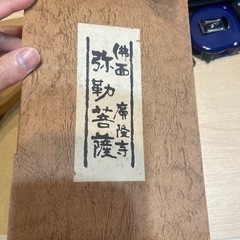 西 廣隆寺
弥勒菩薩